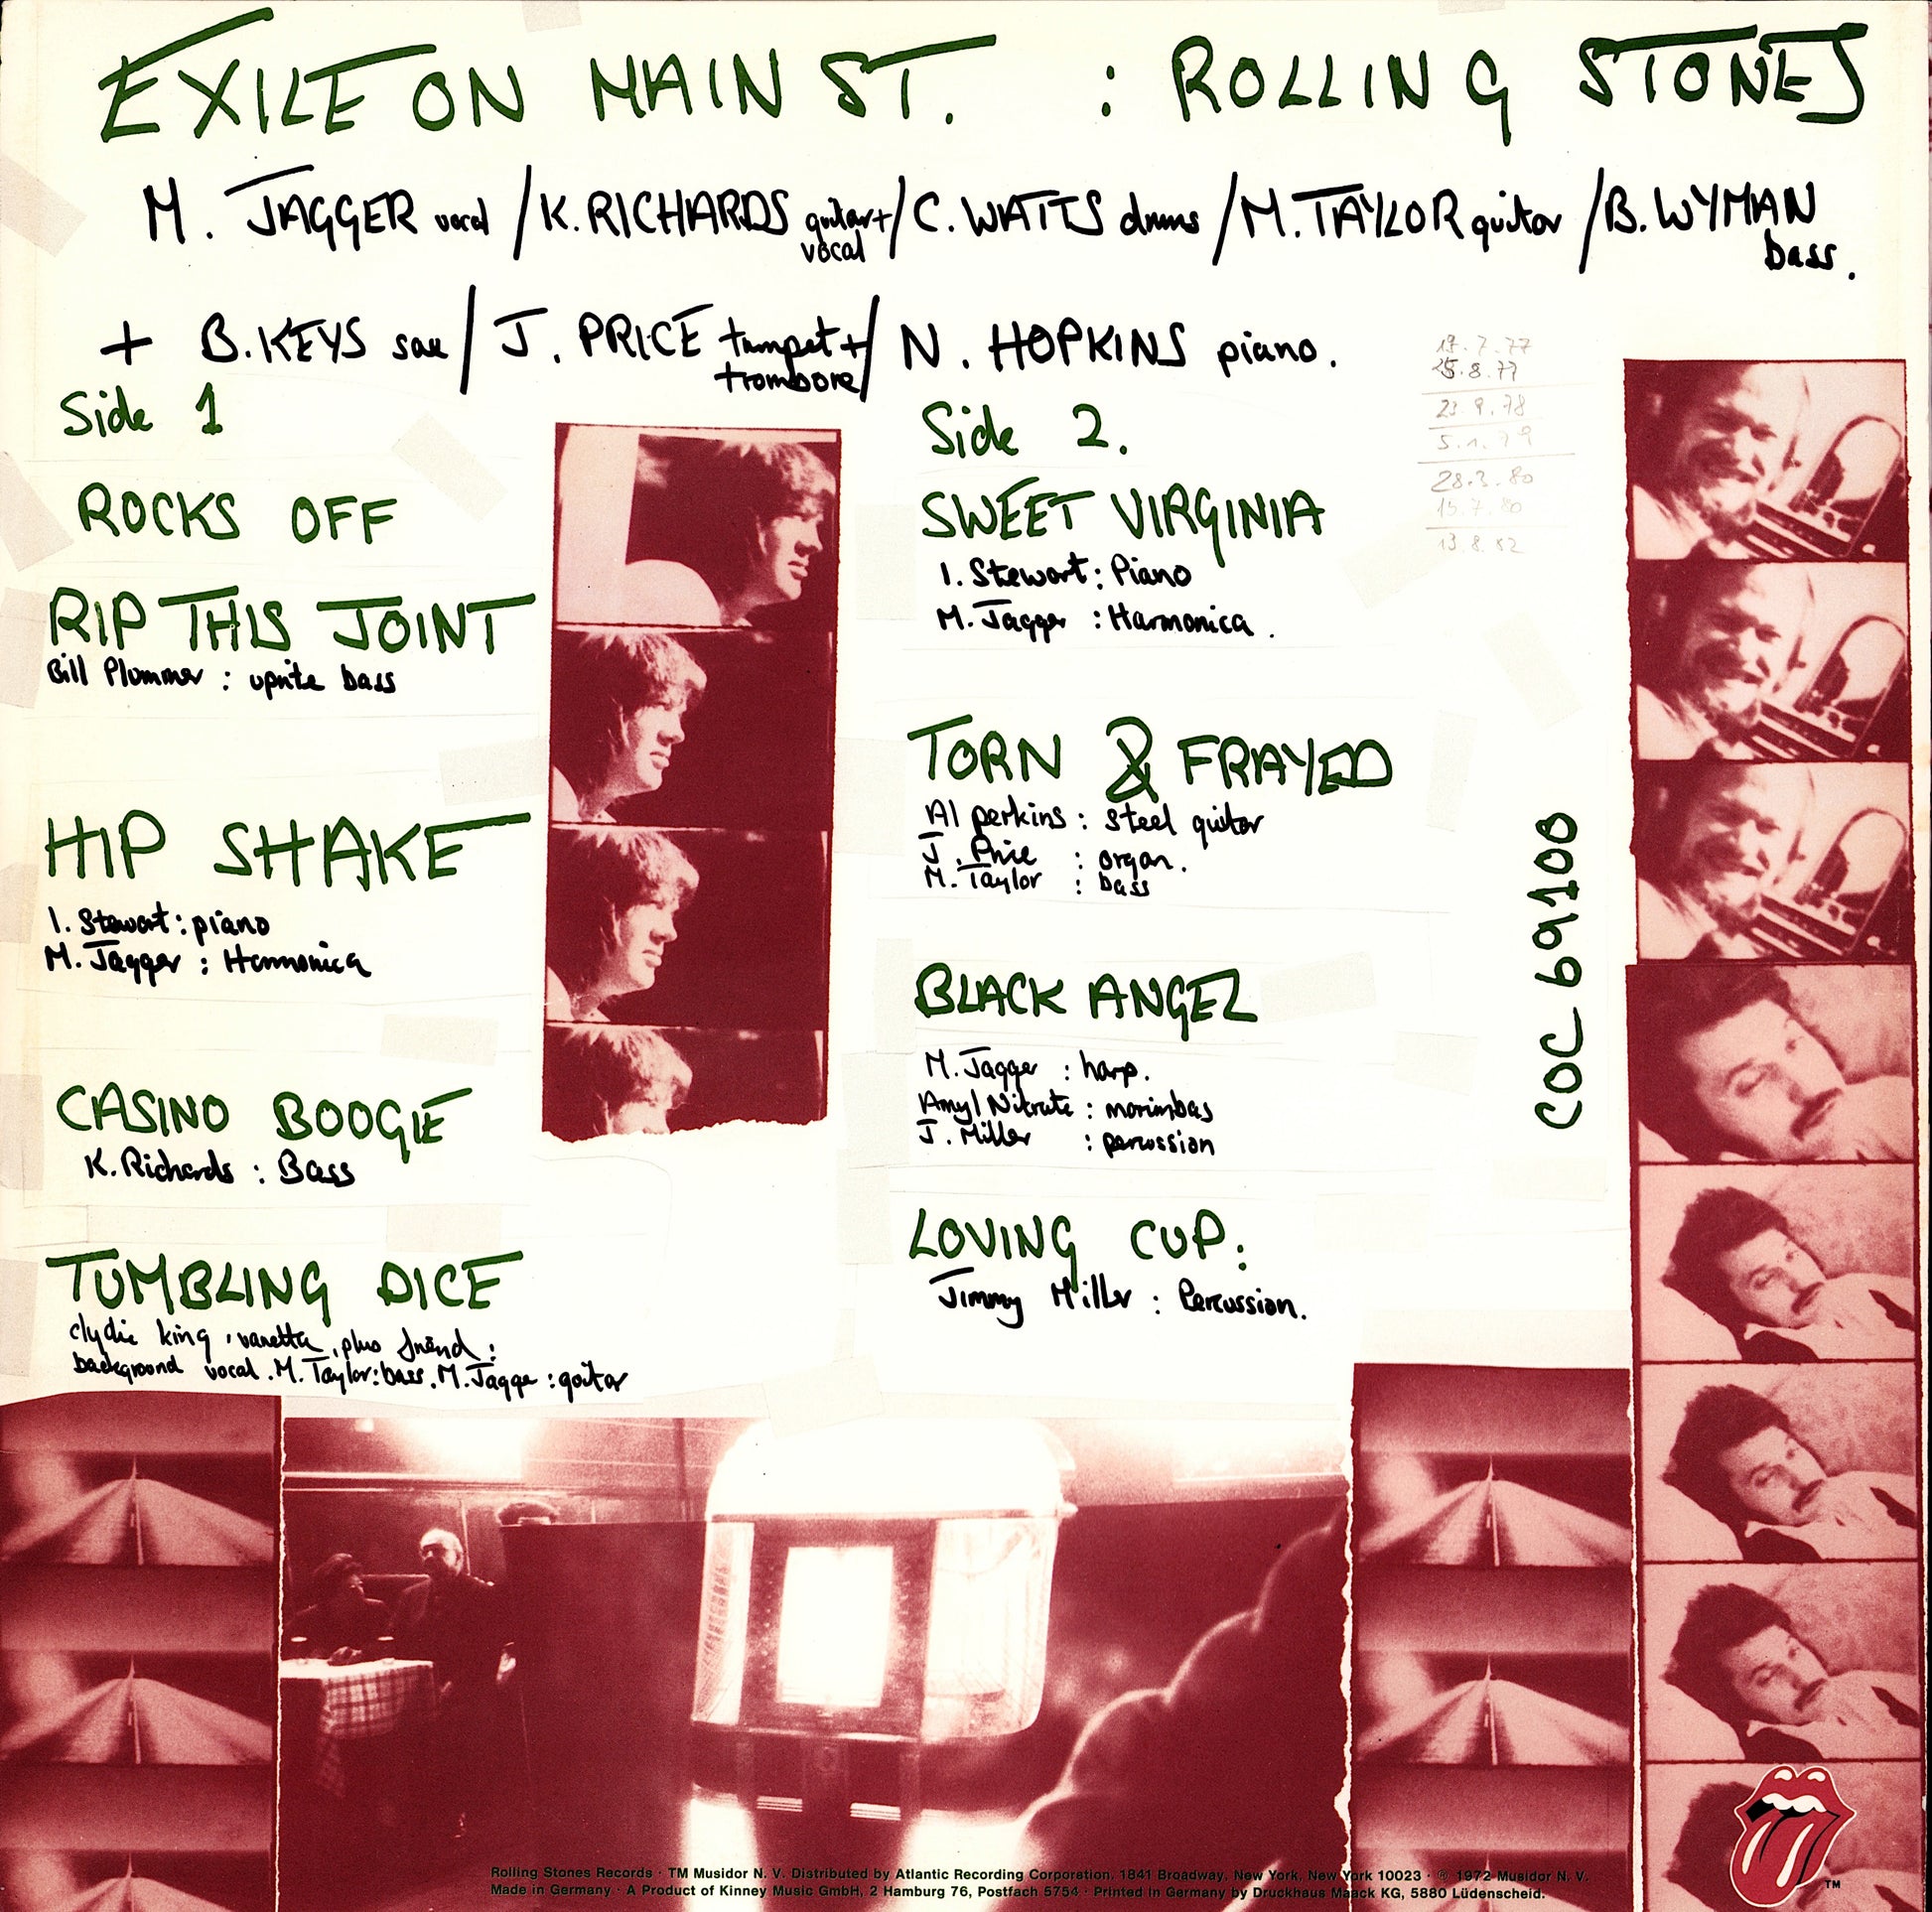 EXILE ON MAIN ST. : ROLLING STONES
M. JAGGER vocal / K. RICHARDS guitar + vocal / C. WATTS drums / M. TAYLOR guitar / B. WYMAN bass.
+ B. KEYS sax / J. PRICE trumpet + trombone / N. HOPKINS piano.
Side 1
ROCKS OFF
RIP THIS JOINT
Bill Plummer : uprite bass
HIP SHAKE
I. Stewart : piano
M. Jagger : Harmonica
CASINO BOOGIE
K. Richards : Bass
TUMBLING DICE
clydie king, vanetta, plus friend :
background vocal. M. Taylor : bass. M. Jagger : guitar
Side 2.
SWEET VIRGINIA
I. Stewart : Piano
M. Jagger : Harmonica.
TORN & FRAYED
Al perkins : steel guitar
J. Price : organ.
M. Taylor : bass
BLACK ANGEL
M. Jagger : harp.
Amyl Nitrate : marimbas
J. Miller : percussion
LOVING CUP :
Jimmy Miller : Percussion.
19.7.77
25.8.77
23.9.78
5.1.79
28.3.80
15.7.80
13.8.82
COC 69100
Rolling Stones Records · TM Musidor N. V. Distributed by Atlantic Recording Corporation, 1841 Broadway, New York, New York 10023 · ℗ 1972 Musidor N. V.
Made in Germany · A Product of Kinney Music GmbH, 2 Hamburg 76, Postfach 5754 · Printed in Germany by Druckhaus Maack KG, 5880 Lüdenscheid.
TM